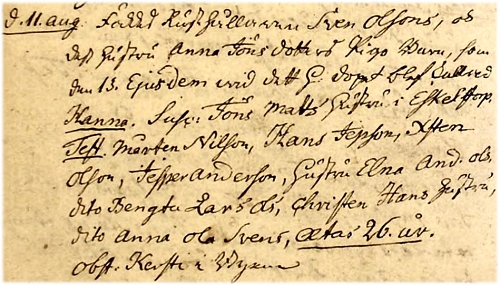 d. 11. aug. Föddes Rusthållaren Sven Olsons, och
dess hustru Anna Jöns dotters Piga Barn, som
den 13. Ejusdem wid dett H. dopet blef kallad
Hanna. Susc: Jöns Matts hustru i Eskelstorp
Test. Mårten Nilson, Hans Jepson,
Olson, Jesper Anderson, hustru Elna And. Ols,
dito Bengta Lars Ols, Christen Hans hustru,
dito Anna Ola Svens, ætas 26. år.
obst. Kersti i